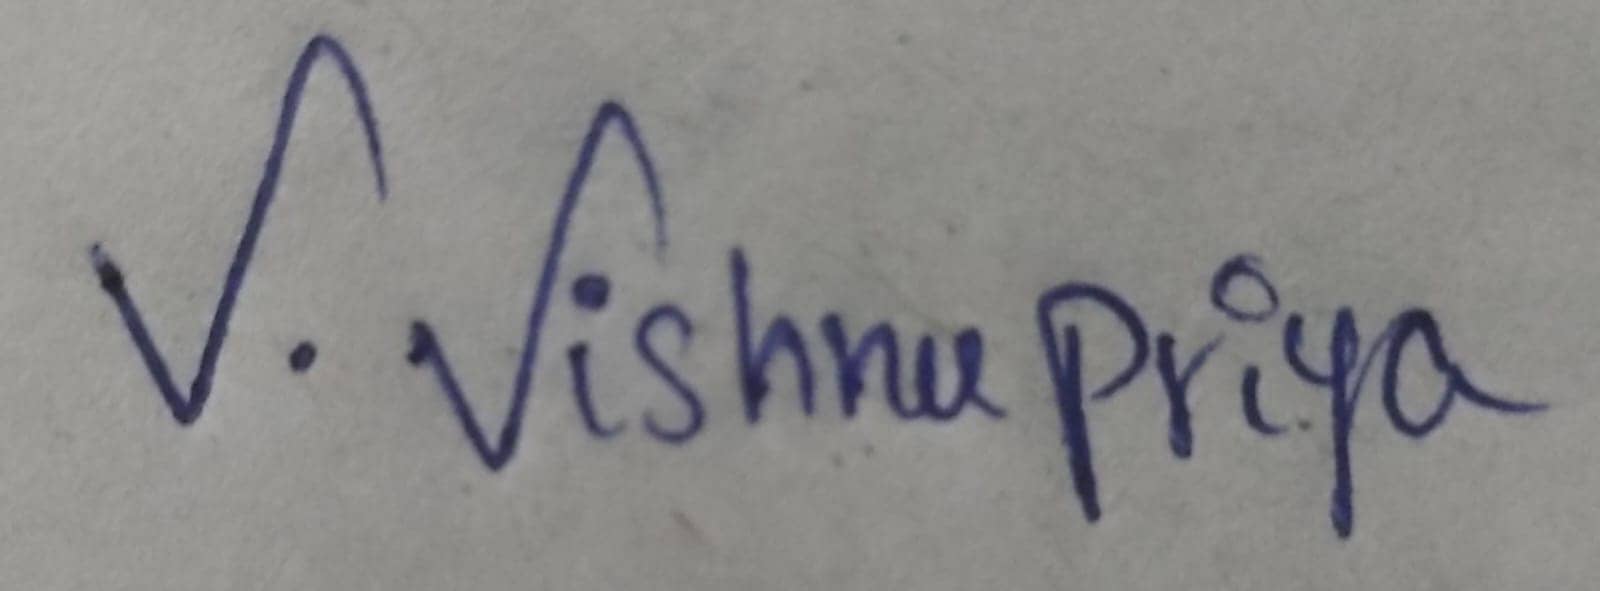 V. Vishnu Priya